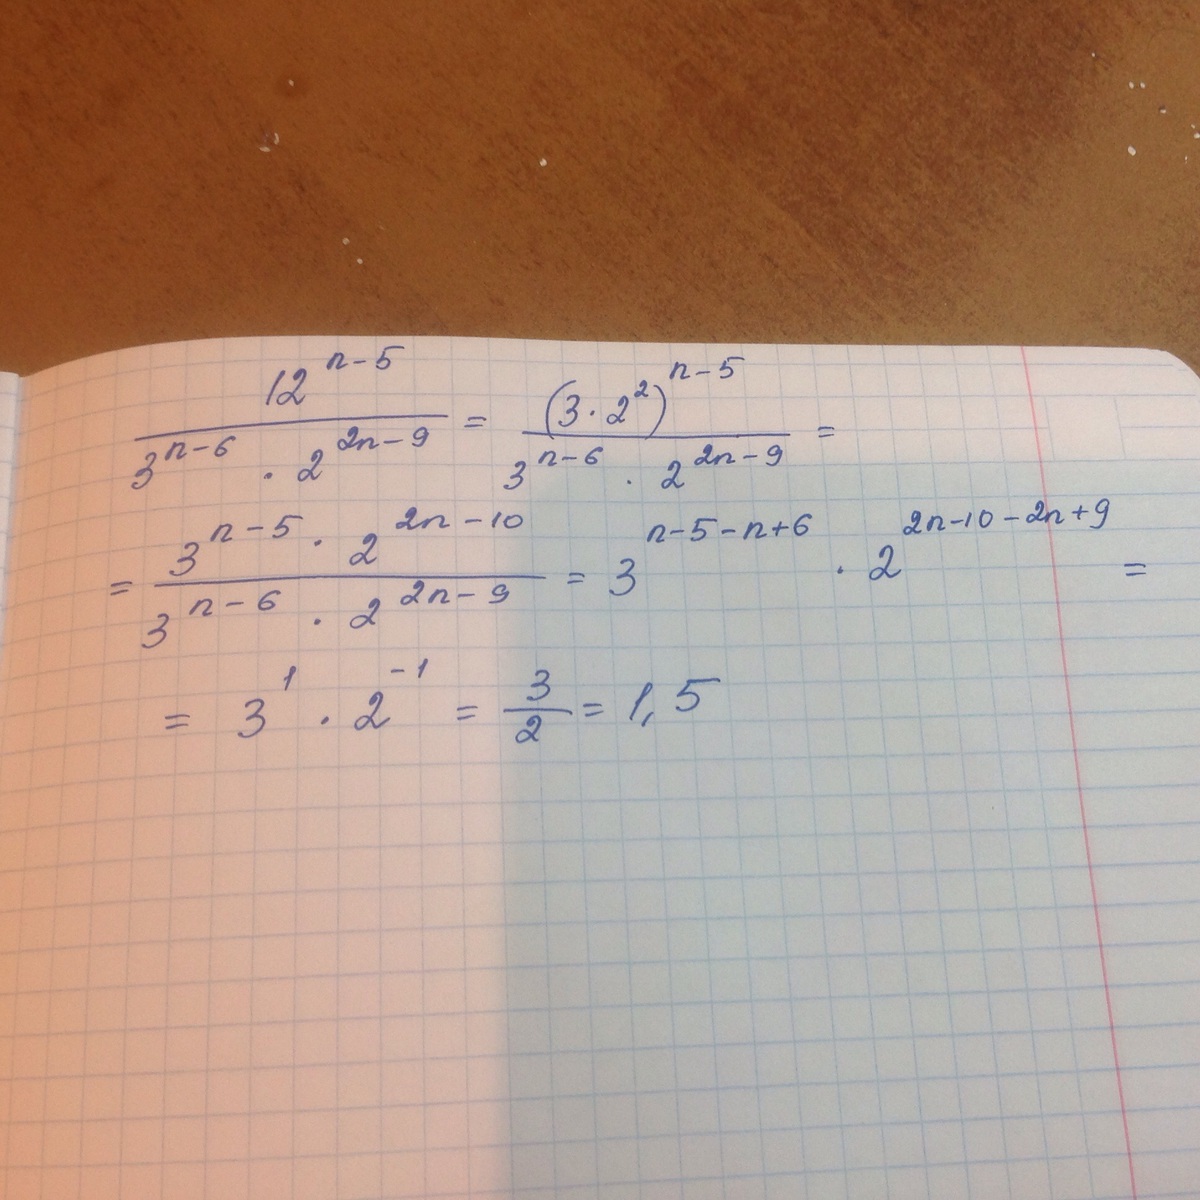 12^(n-5) / (3^(n-6) · 2^(2n-9)) = (3 · 2^2)^(n-5) / (3^(n-6) · 2^(2n-9)) =
= (3^(n-5) · 2^(2n-10)) / (3^(n-6) · 2^(2n-9)) = 3^(n-5-n+6) · 2^(2n-10-2n+9) =
= 3^1 · 2^(-1) = 3/2 = 1,5